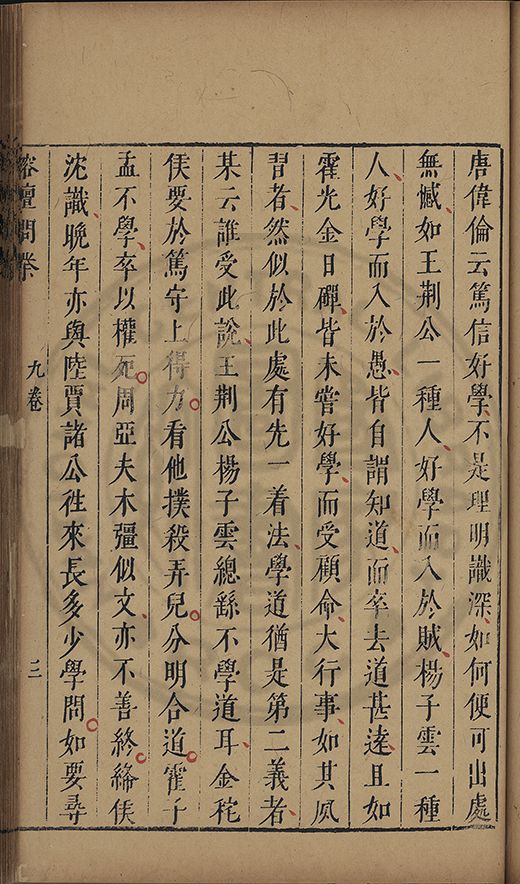 唐偉倫云篤信好學不是理明識深如何便可出處
無憾如王荆公一種人好學而入於賊楊子雲一種
人好學而入於愚皆自謂知道而卒去道甚遠且如
霍光金日磾皆未嘗好學而受顧命大行事如其夙
習者然似於此處有先一着法學道猶是第二義者
某云誰受此說王荆公楊子雲總繇不學道耳金秺
侯要於篤守上得力看他撲殺弄兒分明合道霍子
孟不學卒以權死周亞夫木彊似文亦不善終絳侯
沈識晚年亦與陸賈諸公徃來長多少學問如要尋
榕壇問業
九卷
三